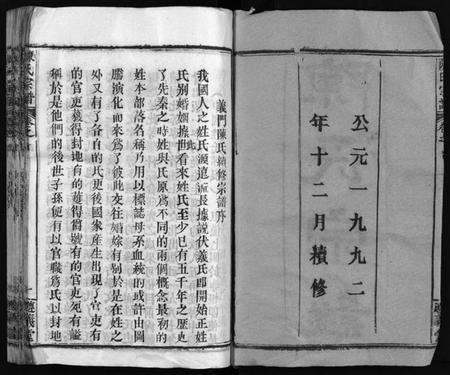 公元一九九二
年十二月續修
義門陳氏續修宗譜序
我國人之姓氏源遠流長據說伏羲氏即開始正姓
氏別婚姻據此看來姓氏至少已有五千年之歷史
了先秦之時姓與氏原為不同的兩個概念最初的
姓本部落名稱乃用以標誌母系血統的或許由圖
騰演化而來為了彼此交往婚嫁有別於是在姓之
外又有了各自的氏更後國家產生出現了官吏有
的官吏獲得封地有的獲得爵號有的官吏死有謚
稱於是他們的後世子孫便有以官職為氏以封地